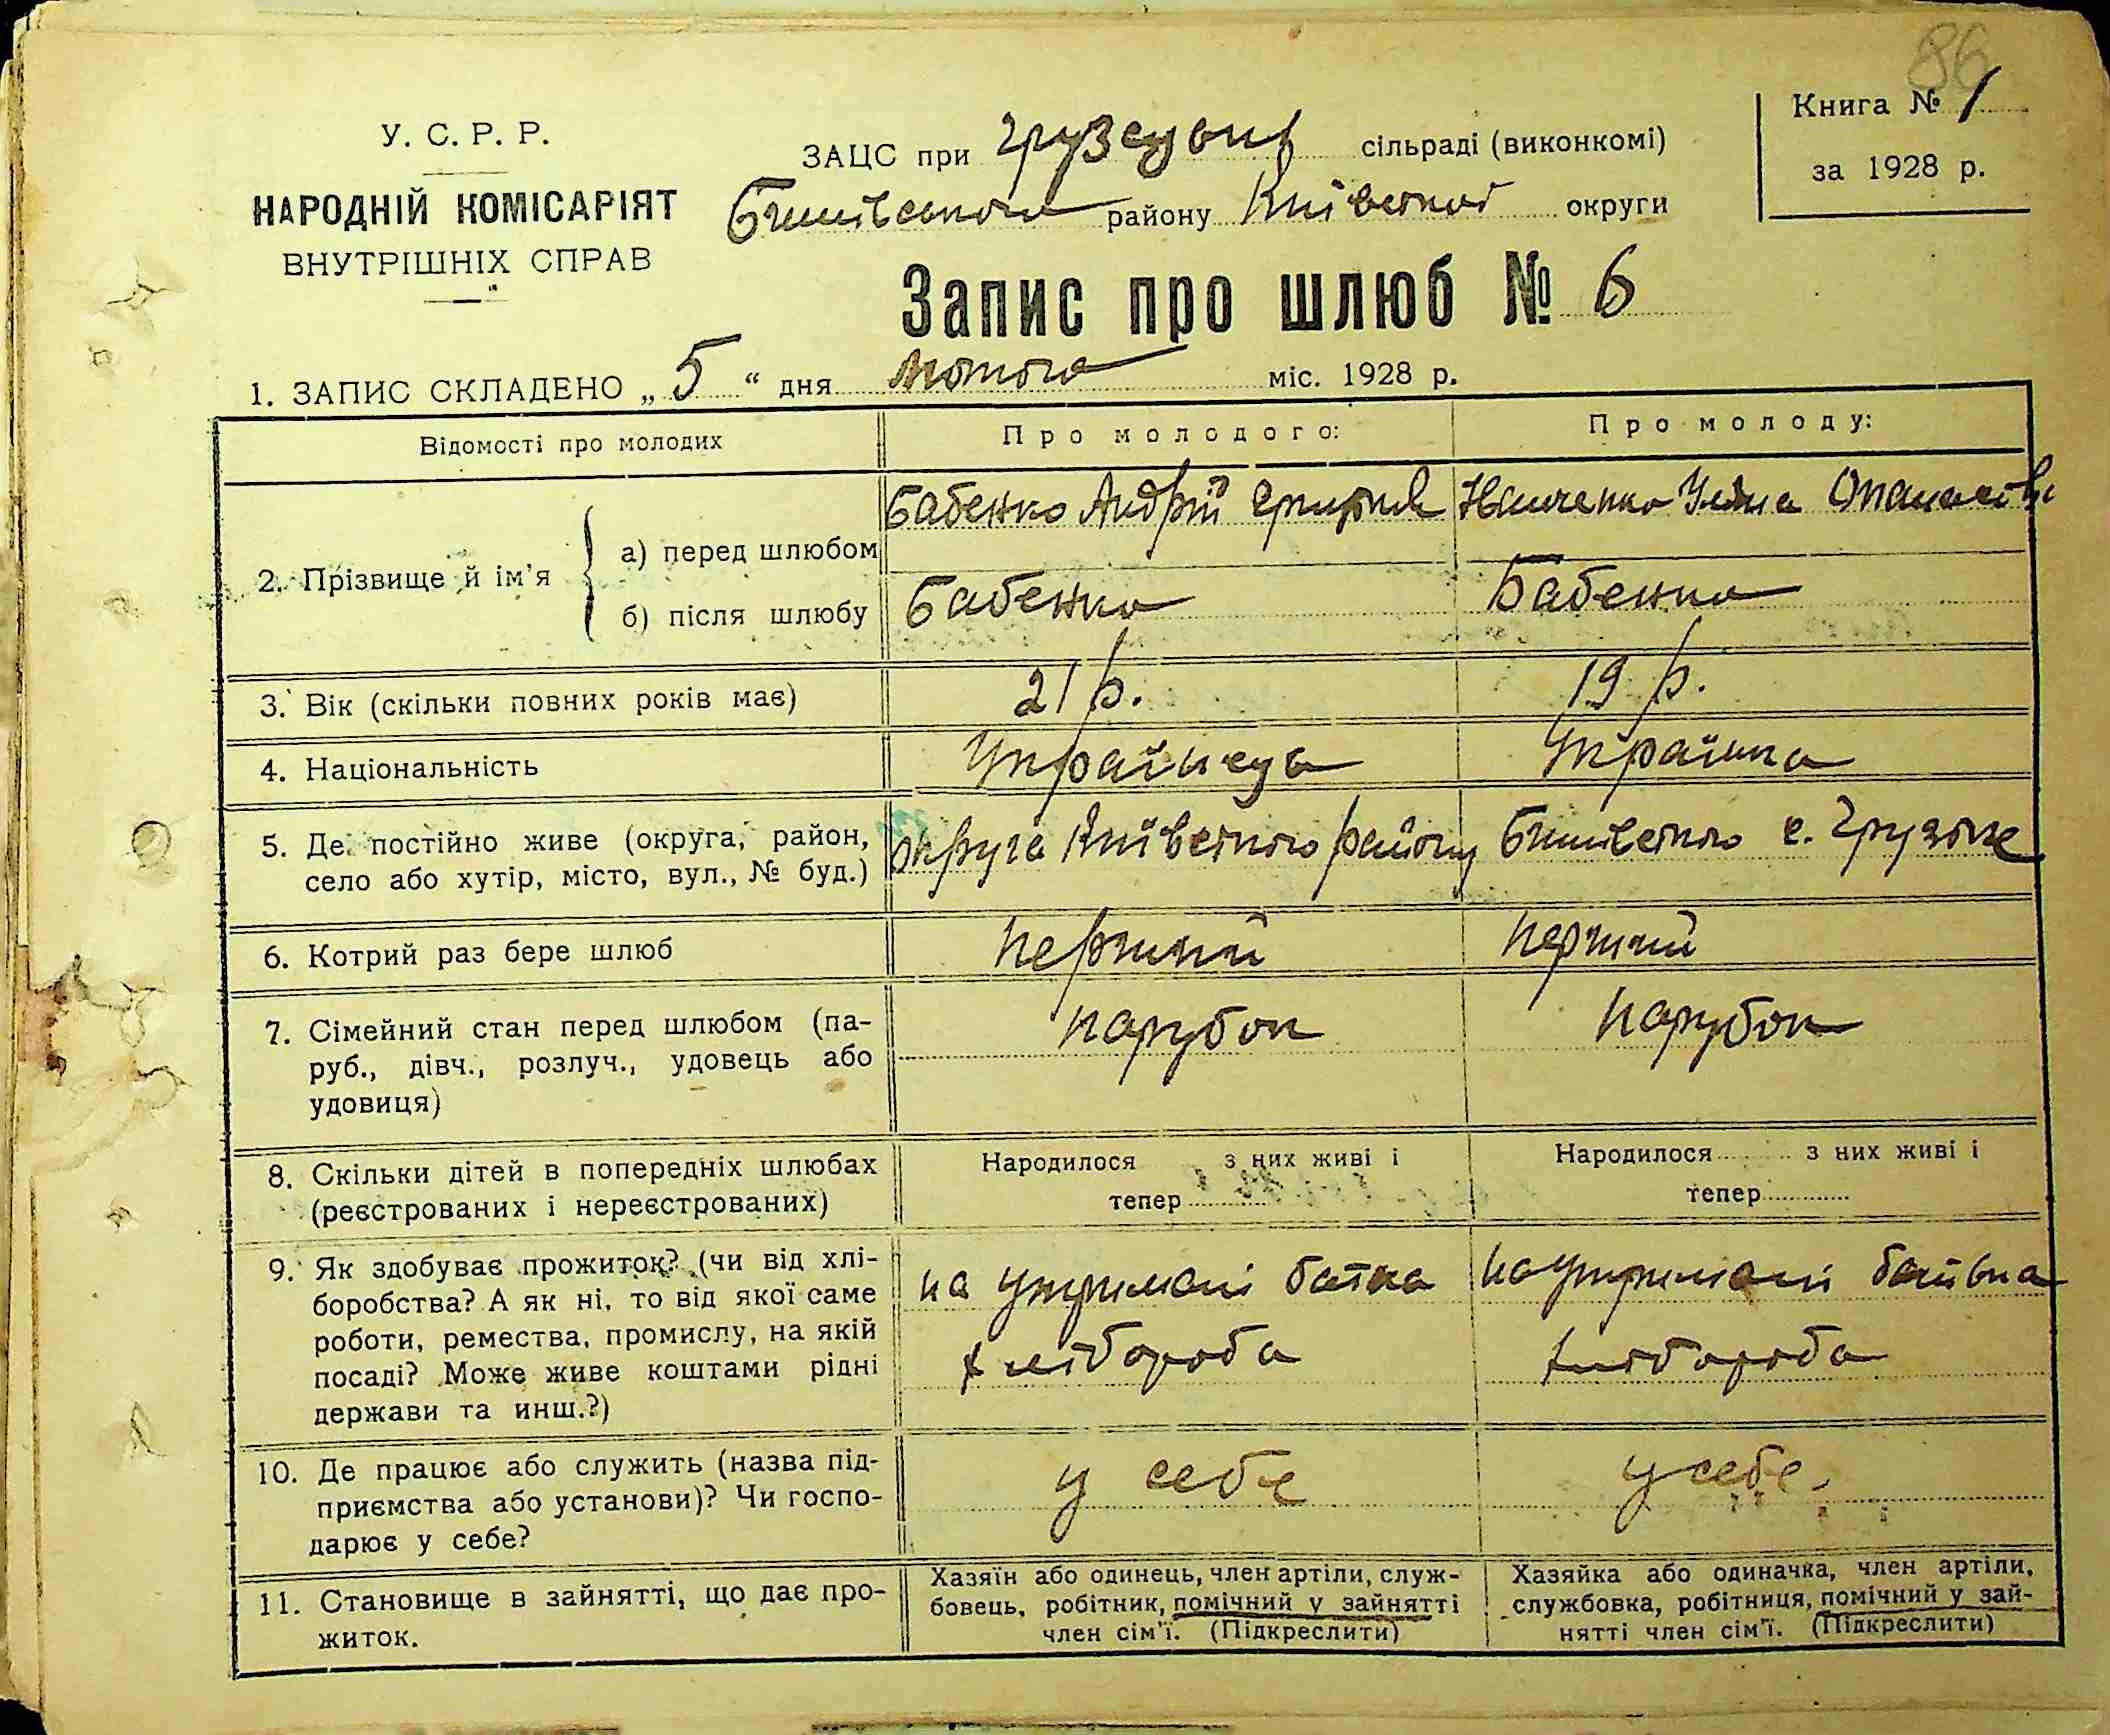 86
Книга № 1
за 1928 р.
У. С. Р. Р.
НАРОДНІЙ КОМІСАРІЯТ
ВНУТРІШНІХ СПРАВ
ЗАЦС при сільраді (виконкомі)
району Київської округи
Запис про шлюб № 6
1. ЗАПИС СКЛАДЕНО „ 5 “ дня лютого міс. 1928 р.
Відомості про молодих
Про молодого:
Про молоду:
2. Прізвище й ім’я
а) перед шлюбом
Бабенко Андрій
Уляна
б) після шлюбу
Бабенко
Бабенко
3. Вік (скільки повних років має)
21 р.
19 р.
4. Національність
Українець
Українка
5. Де постійно живе (округа, район,
село або хутір, місто, вул., № буд.)
округа Київського району
с. Грузьке
6. Котрий раз бере шлюб
перший
перший
7. Сімейний стан перед шлюбом (па-
руб., дівч., розлуч., удовець або
удовиця)
парубок
парубок
8. Скільки дітей в попередніх шлюбах
(реєстрованих і нереєстрованих)
Народилося з них живі і
тепер
Народилося з них живі і
тепер
9. Як здобуває прожиток? (чи від хлі-
боробства? А як ні, то від якої саме
роботи, ремества, промислу, на якій
посаді? Може живе коштами рідні
держави та инш.?)
на утримані батька
хлібороба
на утримані батька
хлібороба
10. Де працює або служить (назва під-
приємства або установи)? Чи госпо-
дарює у себе?
у себе
у себе
11. Становище в зайнятті, що дає про-
житок.
Хазяїн або одинець, член артіли, служ-
бовець, робітник, помічний у зайнятті
член сім’ї. (Підкреслити)
Хазяйка або одиначка, член артіли,
службовка, робітниця, помічний у зай-
нятті член сім’ї. (Підкреслити)